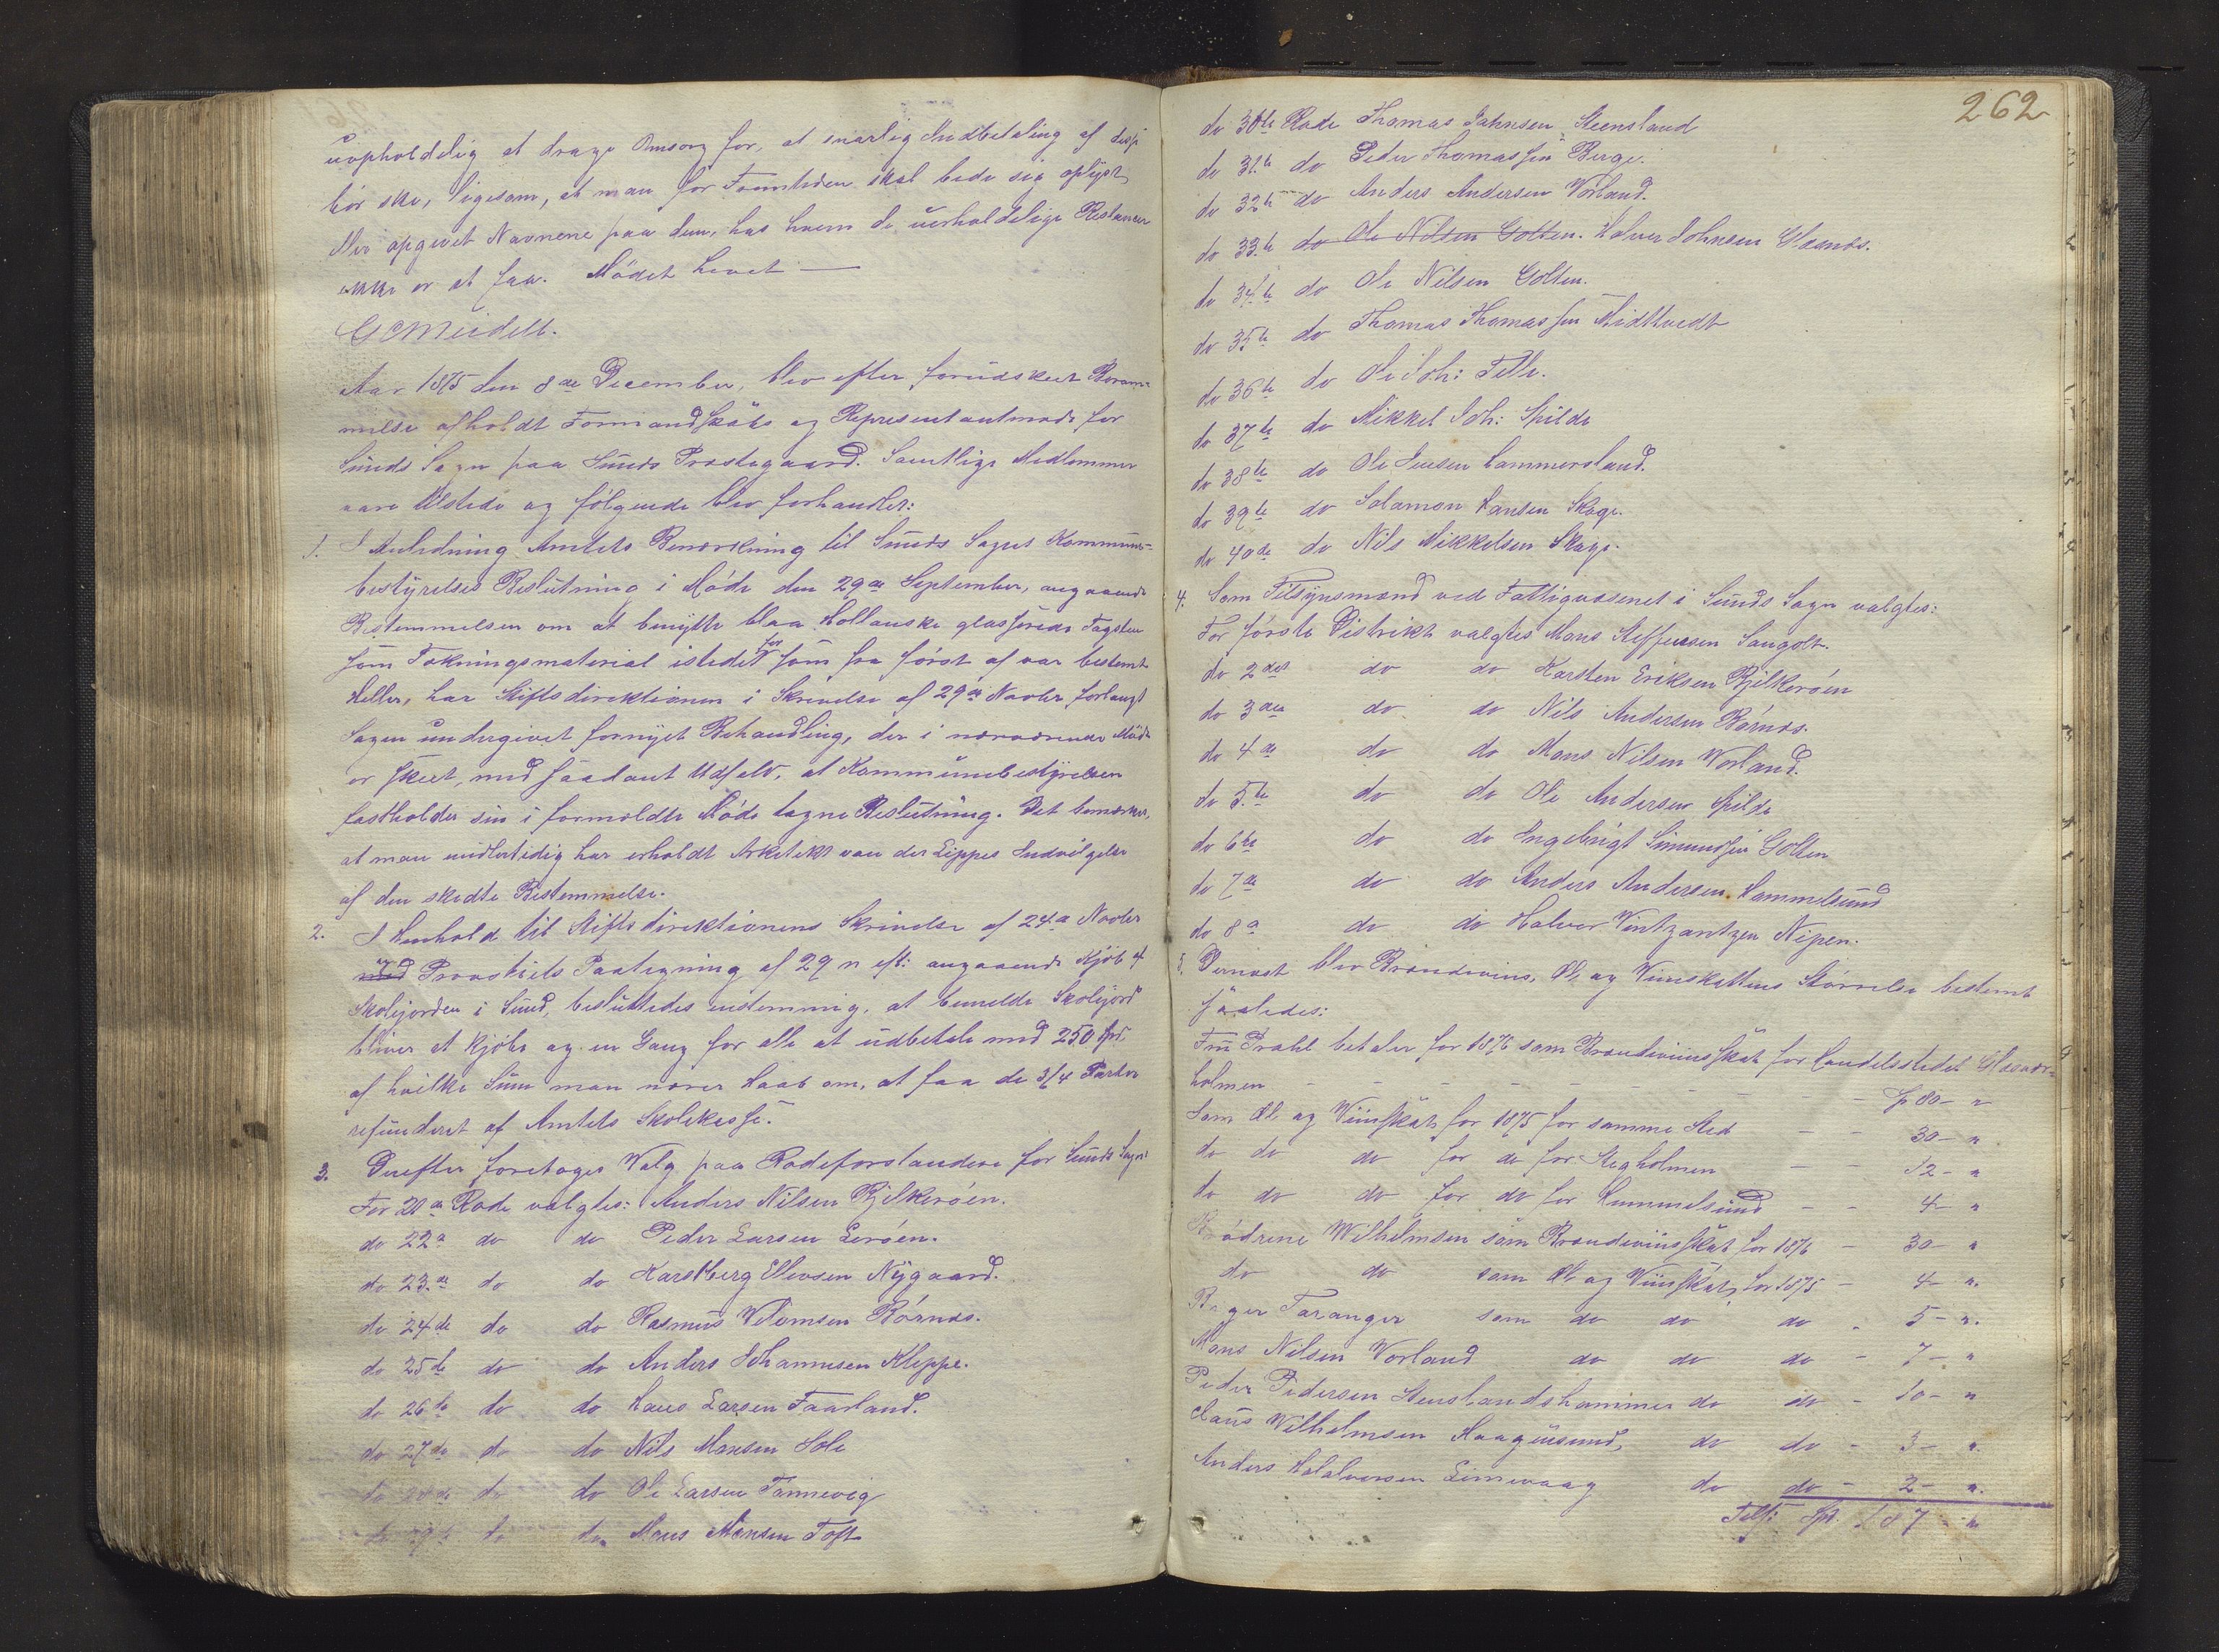 uopholdelig at drage Omsorg for, at snarlig Indbetaling af disse
bör ske, ligesom, at man for Fremtiden skal bede sig oplyst
eller opgivet Navnene paa dem, hos hvem de uerholdelige Restancer
ikke er at faa. Mödet hævet —
G C Meidell.
Aar 1875 den 8de December, blev efter forudskeet Beram-
melse afholdt Formandskabs og Representantmöde for
Sunds Sogn paa Sunds Præstegaard. Samtlige Medlemmer
vare tilstede og fölgende blev forhandlet:
1. I Anledning Amtets Bemærkning til Sunds Sogns Kommune-
bestyrelses Beslutning i Möde den 29de September, angaaende
Bestemmelsen om at benytte blaa Hollanske glasserede Tagsten
som Tækningsmaterial istedet for som fra först af var bestemt
Heller, har Stiftsdirektionen i Skrivelse af 29de Novbr forlangt
Sagen undergivet fornyet Behandling, der i nærværende Möde
er skeet, med saadant Udfald, at Kommunebestyrelsen
fastholder sin i formeldte Möde tagne Beslutning. Det bemærkes,
at man midlertidig har erholdt Arkitekt van der Lippes Indvilgelse
af den skedte Bestemmelse.
2. I Henhold til Stiftsdirektionens Skrivelse af 24de Novbr
med og Provstiets Paategning af 29 n. eft: angaaende Kjöb af
Skolejorden i Sund, besluttedes enstemmig, at bemeldte Skolejord
bliver at kjöbe og en Gang for alle at udbetale med 250 Spd.
af hvilke Sum man nærer Haab om, at faa de 3/4 Parter
refunderet af Amtets Skolekasse.
3. Derefter foretoges Valg paa Rodeforstandere for Sunds Sogn:
For 21de Rode valgtes: Anders Nilsen Bjelkeröen.
do 22de do do Peder Larsen Leröen.
do 23.de do do Karstberg Ellevsen Nygaard.
do 24de do do Rasmus Villomsen Börnæs.
do 25de do do Anders Johannesen Kleppe.
do 26de do do Hans Larsen Faarland.
do 27de do do Nils Monsen Töle
do 28de do do Ole Larsen Tømmevig
do 29de do do Mons Monsen Toft
262
do 30te Rode Thomas Johnsen Steensland
do 31.te do Peder Thomassen Berge.
do 32te do Anders Andersen Vorland.
do 33.te do Ole Nilsen Golten. Halvor Johnsen Glesnæs.
do 34te do Ole Nilsen Golten.
do 35te do Thomas Thomassen Midttvedt
do 36te do Ole Joh: Telle.
do 37te do Mikkel Joh: Spilde
do 38te do Ole Jensen Cammersland.
do 39te do Salamon Hansen Skage.
do 40de do Nils Mikkelsen Skage.
4. Som Tilsynsmænd ved Fattigvæsenet i Sunds Sogn valgtes:
For förste Distrikt valgtes Mons Steffensen Sangolt.
do 2det do do Karsten Eriksen Bjelkeröen
do 3die do do Nils Andersen Börnæs.
do 4de do do Mons Nilsen Worland.
do 5.te do do Ole Andersen Spilde
do 6te do do Ingebrigt Simensen Golten
do 7de do do Anders Andersen Hammelsund
do 8de do do Halvor Vintzantzen Nipen.
5. Dernæst blev Brændevins, Öl og Vinskattens Störrelse bestemt
saaledes:
Fru Prahl betaler for 1876 som Brændeviinsskat for Handelsstedet Glesvær-
holmen - - - - - - - - Sp 80 - "
Som Öl og Viinskat for 1875 for samme Sted - - 30 - "
do do do for do for Stegholmen - - 12 - "
do do do for do for Hummelsund - - 4 - "
Brödrene Wilhelmsen som Brændeviinsskat for 1876 - 30 - "
do do som Öl og Viinskat for 1875 - 4 - ".
Birger Taranger som do do do - 5 - ".
Mons Nilsen Vorland do do do - 7 - "
Peder Pedersen Stenslandshammer do do - 10 - "
Claus Wilhelmsen Kaagusund, do do - 3 - ".
Anders Halvorsen Limevaag do do - 2 - ".
Tils: Spd. 187 - "